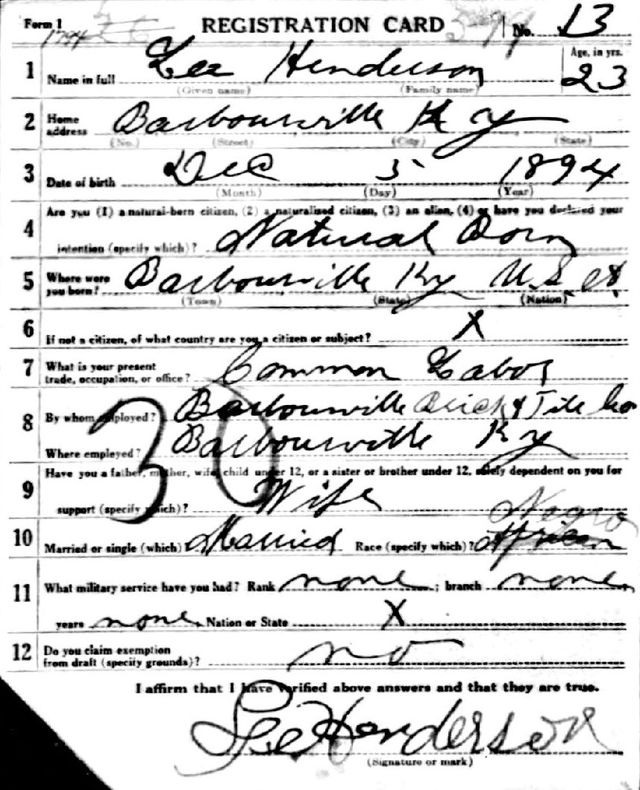 Form 1 REGISTRATION CARD No. 13
1 Name in full Lee Henderson Age, in yrs. 23
(Given name) (Family name)
2 Home address Barbourville Ky
(No.) (Street) (City) (State)
3 Date of birth Dec 5 1894
(Month) (Day) (Year)
4 Are you (1) a natural-born citizen, (2) a naturalized citizen, (3) an alien, (4) or have you declared your
intention (specify which)? Natural Born
5 Where were you born? Barbourville Ky U.S.A
(Town) (State) (Nation)
6 If not a citizen, of what country are you a citizen or subject? X
7 What is your present trade, occupation, or office? Common Labor
8 By whom employed? Barbourville Brick & Tile Co
Where employed? Barbourville Ky
30
9 Have you a father, mother, wife, child under 12, or a sister or brother under 12, solely dependent on you for
support (specify which)? Wife
Negro
10 Married or single (which)? Married Race (specify which)? African
11 What military service have you had? Rank none; branch none
years none Nation or State X
12 Do you claim exemption from draft (specify grounds)? no
I affirm that I have verified above answers and that they are true.
Lee Henderson
(Signature or mark)